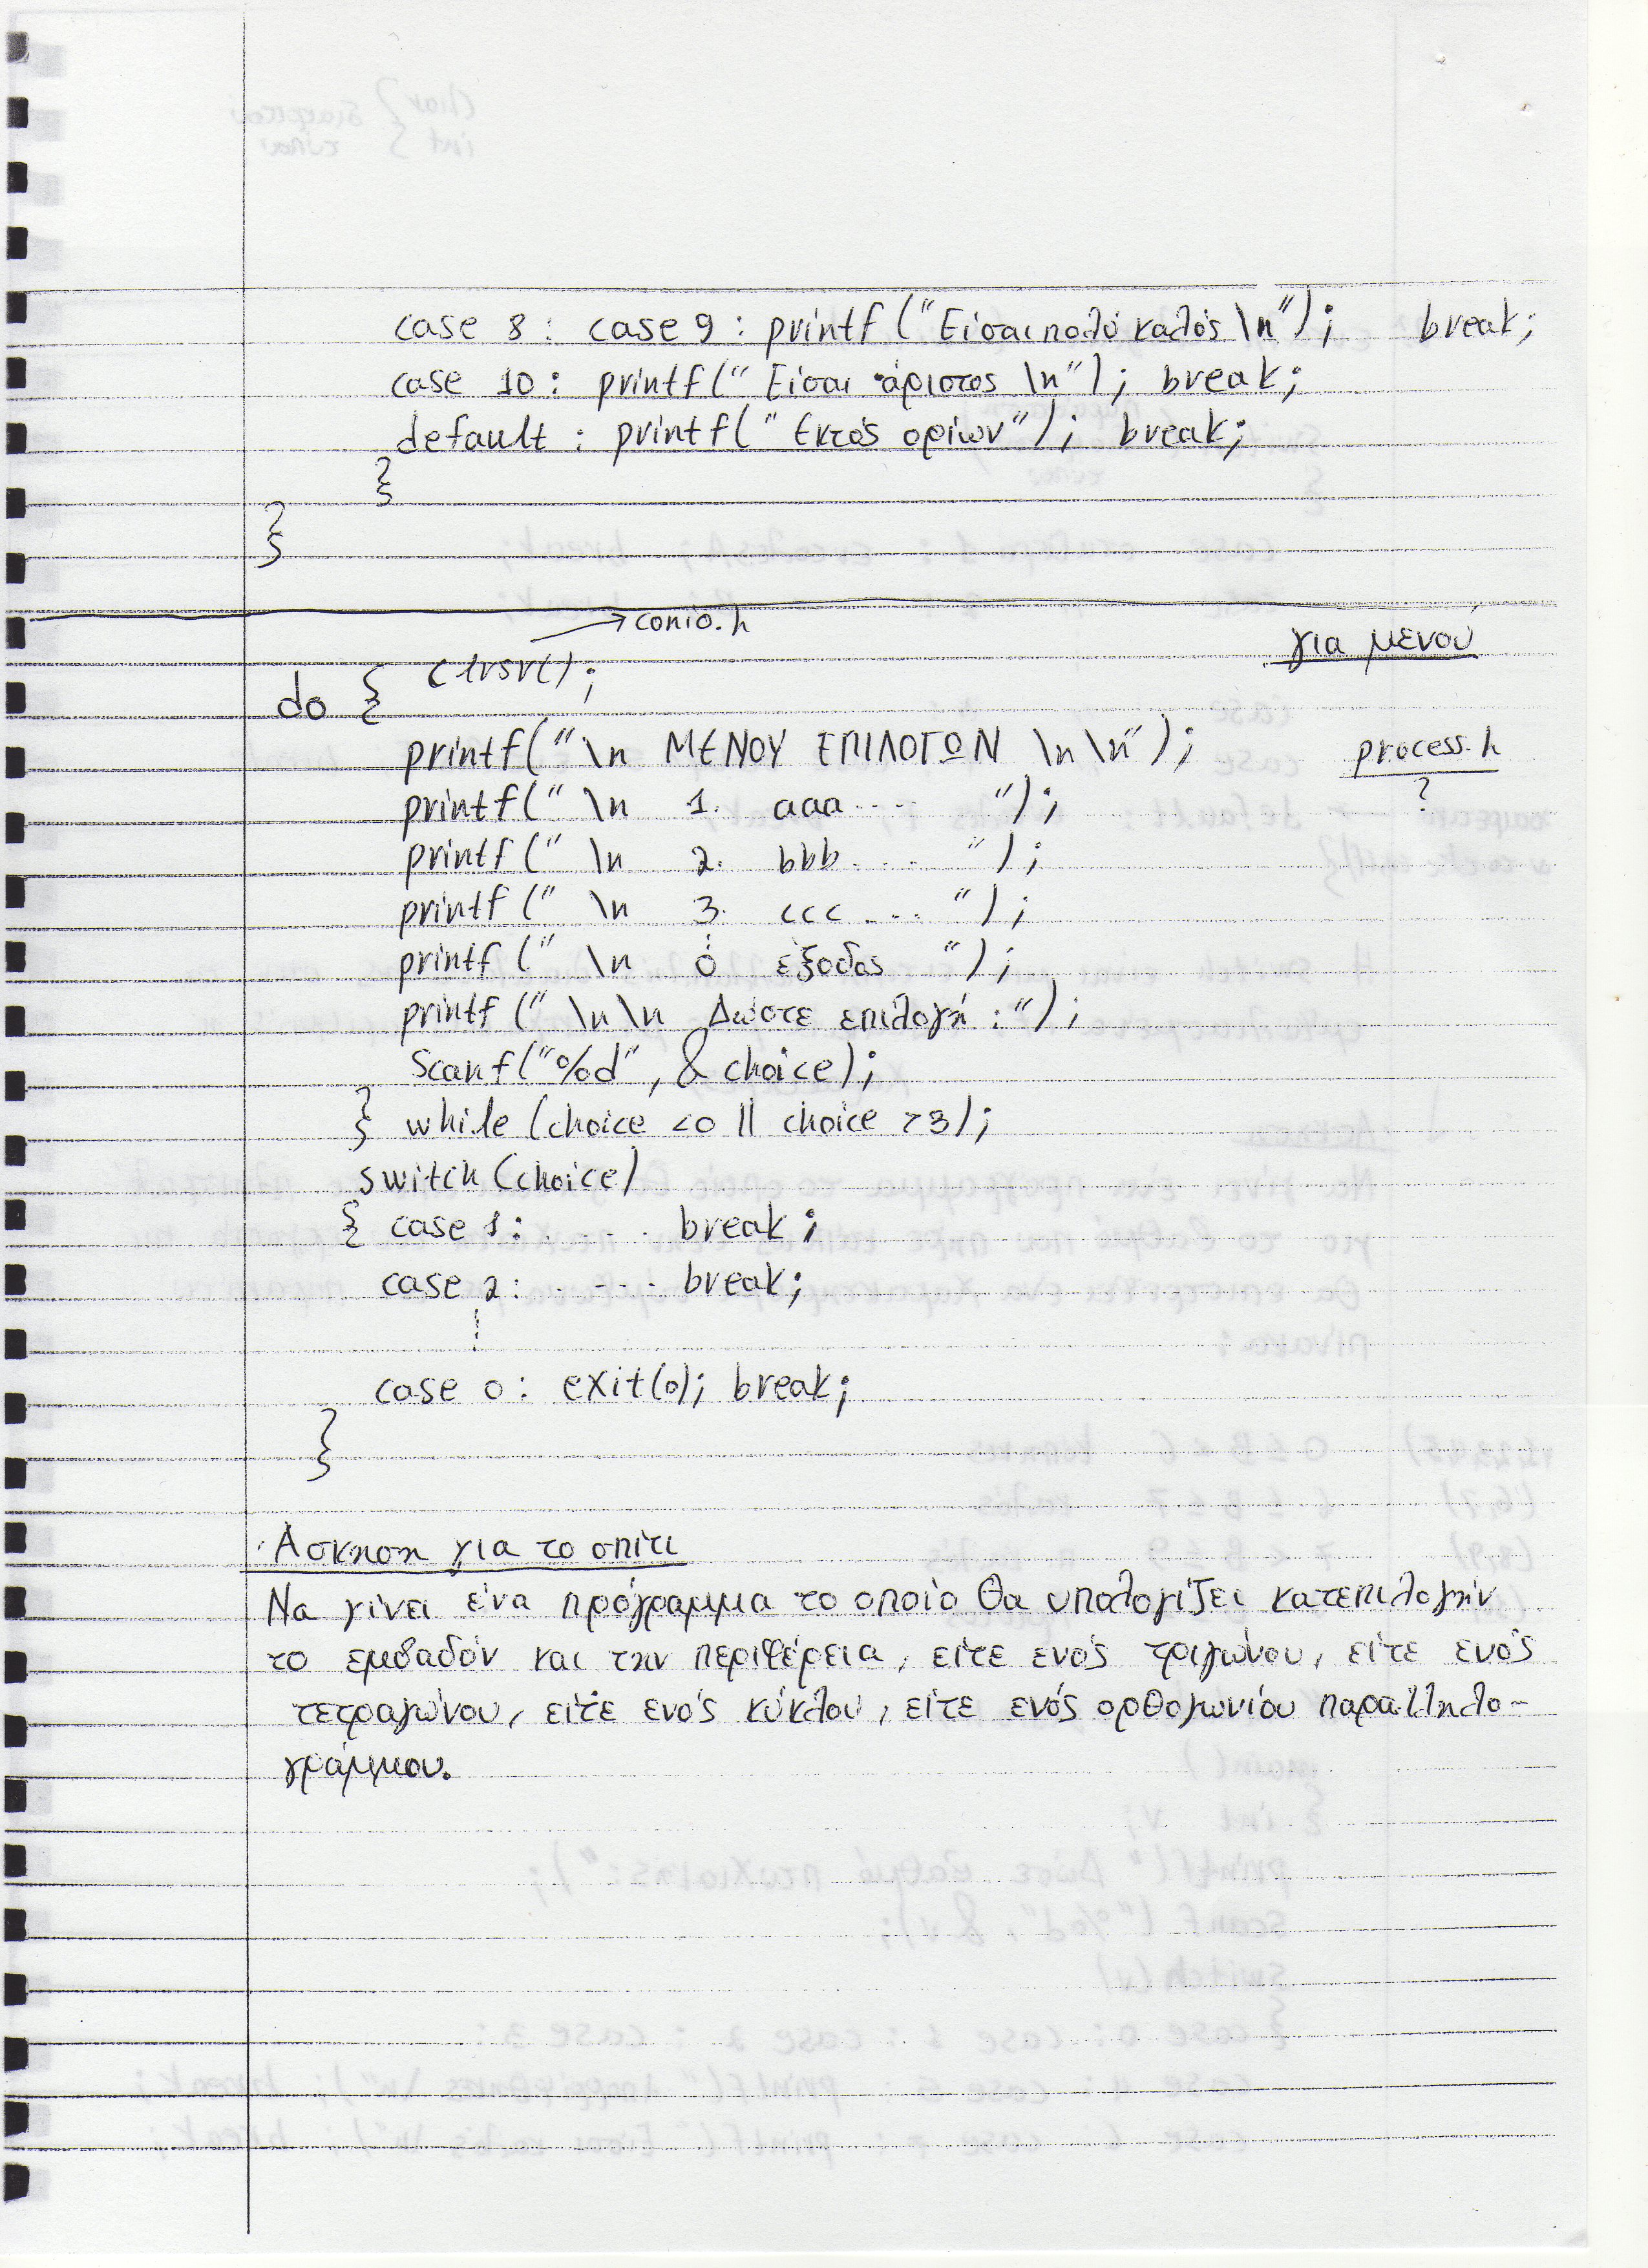 case 8 : case 9 : printf ("Είσαι πολύ καλός \n"); break;
case 10: printf(" Είσαι άριστος \n"); break;
default : printf(" Εκτός ορίων"); break;
}
}
→ conio.h
για μενού
do { clrscr();
printf("\n ΜΕΝΟΥ ΕΠΙΛΟΓΩΝ \n\n"); process.h
?
printf(" \n 1. aaa.... ");
printf(" \n 2. bbb.... ");
printf (" \n 3. ccc .... ");
printf (" \n 0 έξοδος ");
printf (" \n\n Δώστε επιλογή :");
scanf("%d", & choice);
} while (choice <0 || choice >3);
switch (choice)
{ case 1: . . . . break ;
case 2: . --- break;
⋮
case 0: exit(0); break;
}
Άσκηση για το σπίτι
Να γίνει ένα πρόγραμμα το οποίο θα υπολογίζει κατεπιλογήν
το εμβαδόν και την περιφέρεια, είτε ενός τριγώνου, είτε ενός
τετραγώνου, είτε ενός κύκλου, είτε ενός ορθογωνίου παραλληλο-
γράμμου.